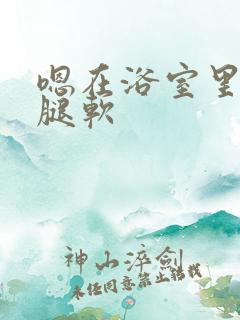 嗯在浴室里
腿软
神山淬剑
未经同意禁止转载